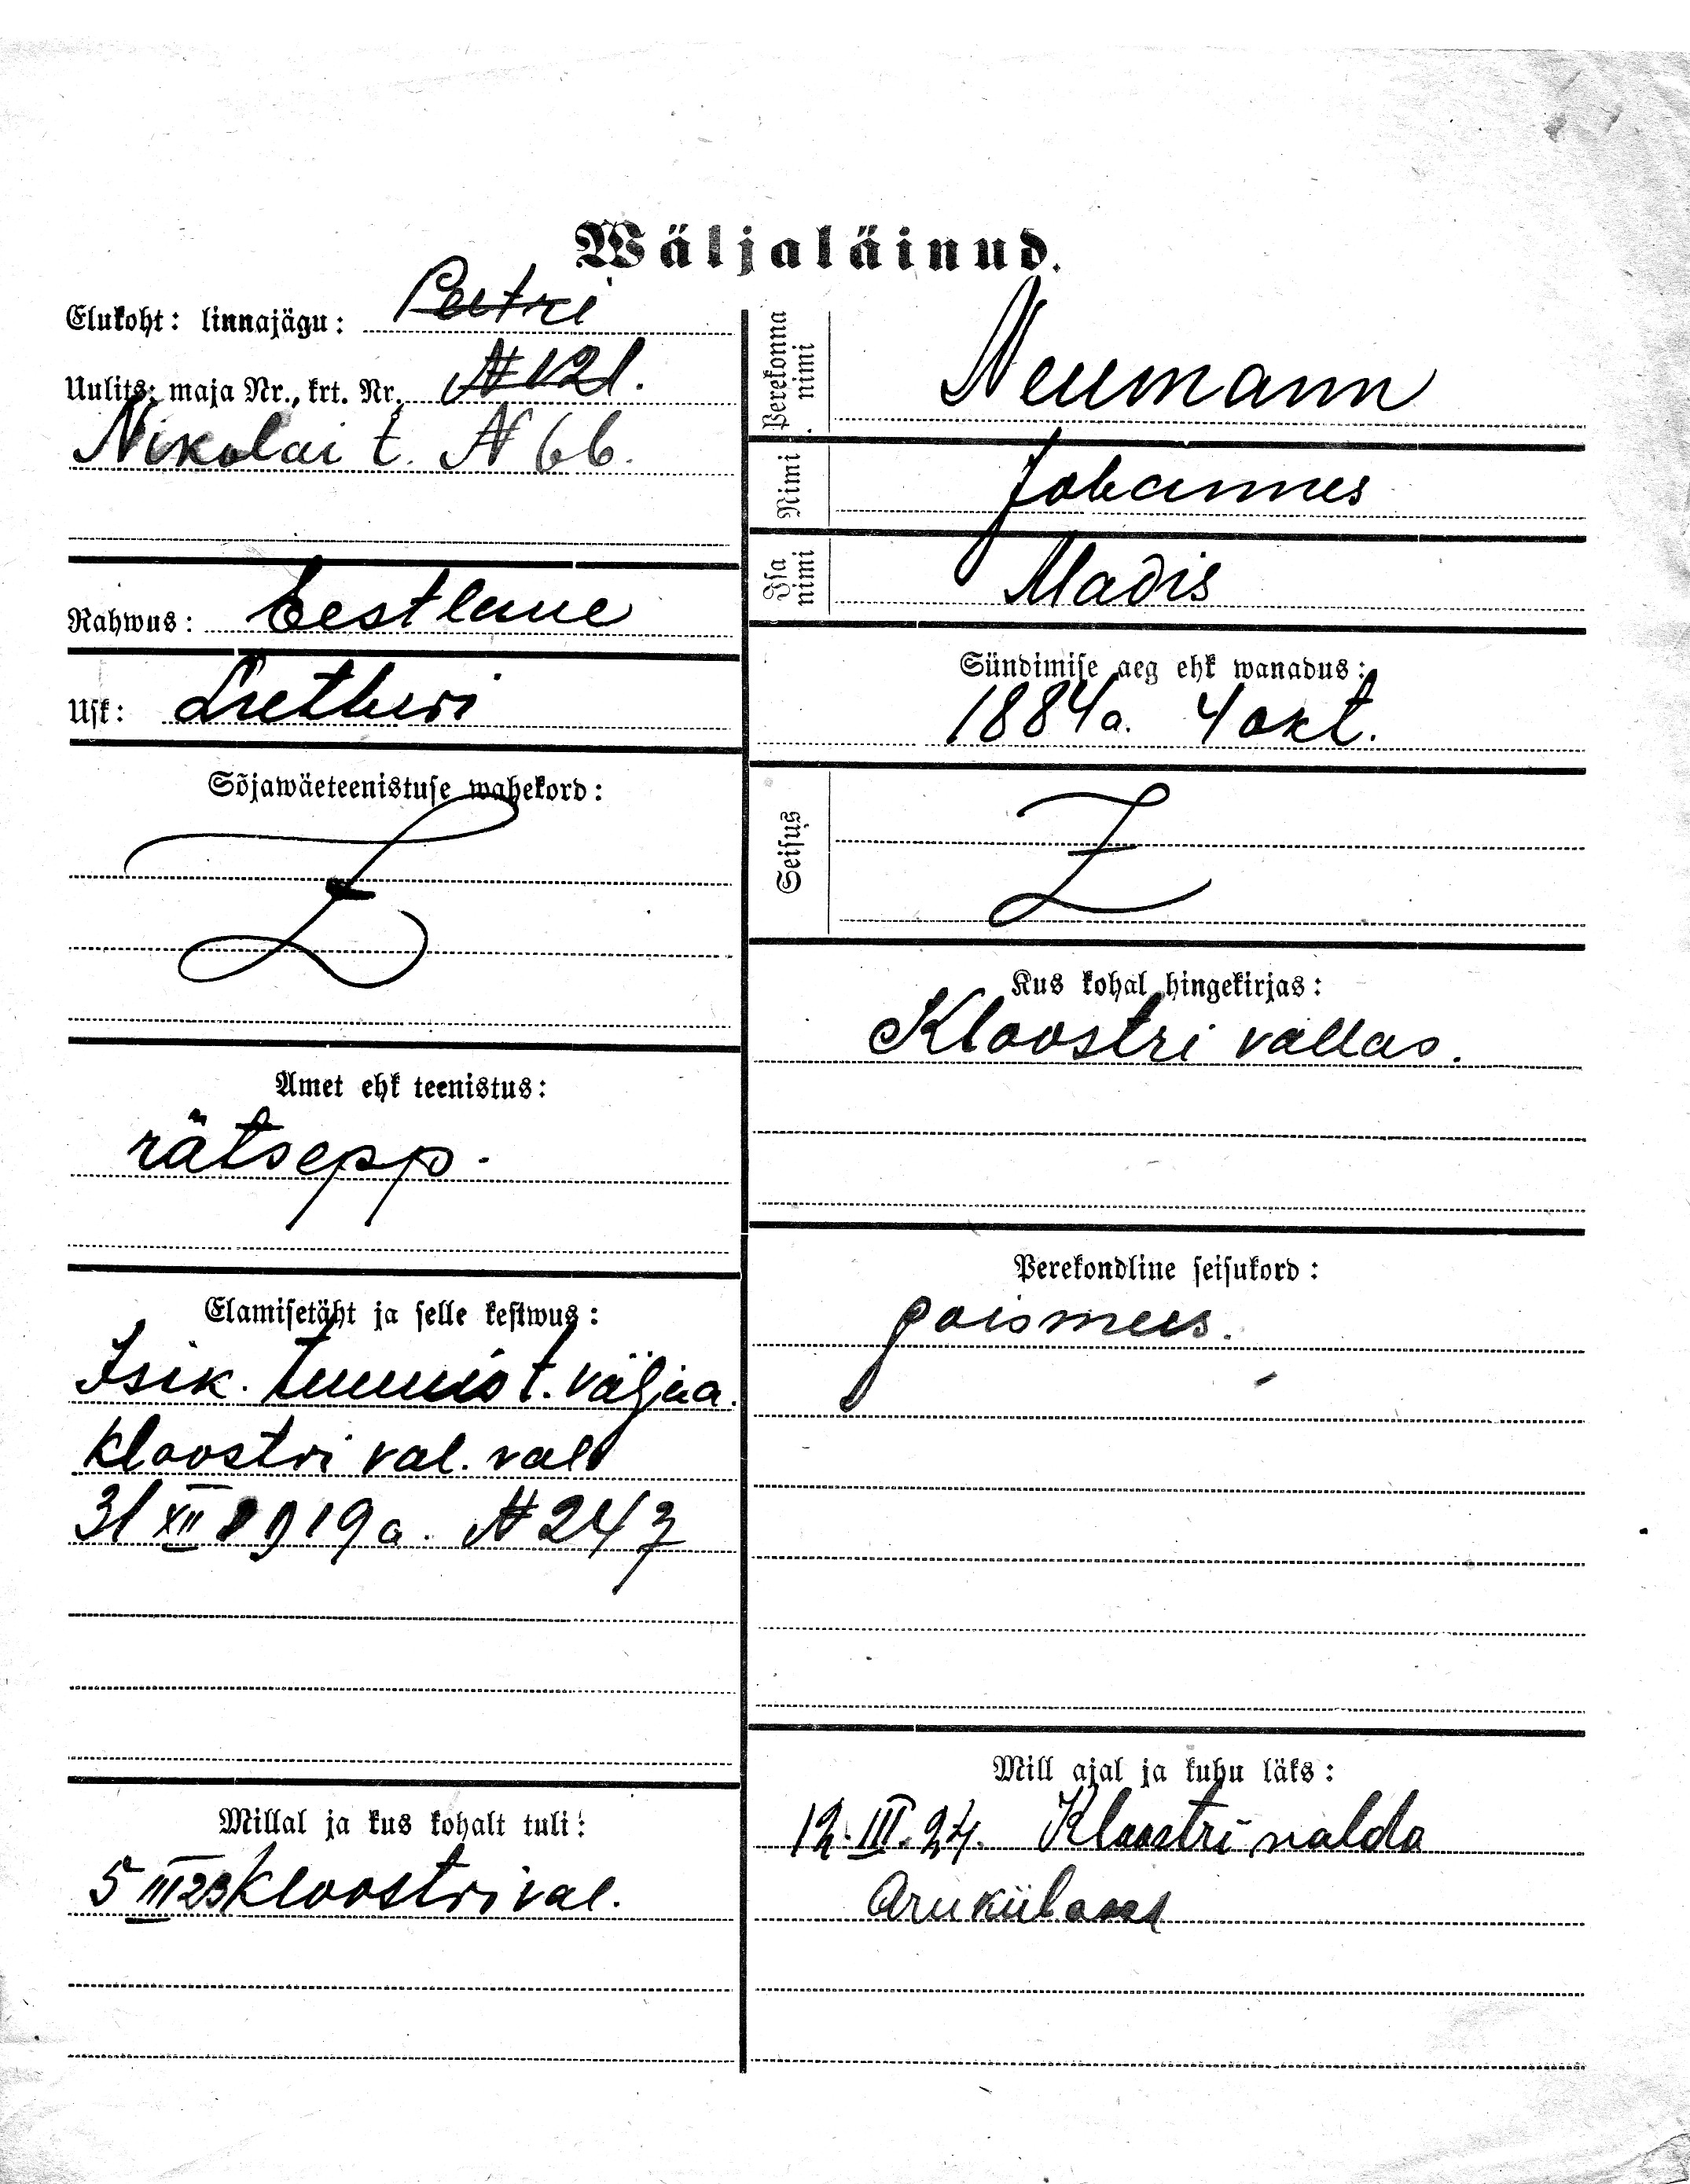 Wäljaläinud.
Elukoht: linnajägu: Peetri
Uulits: maja Nr., krt. Nr. N 121.
Nikolai t. N 66.
Rahwus: Eestlane
Usk: Lutheri
Sõjawäeteenistuse wahekord:
Amet ehk teenistus:
rätsepp.
Elamisetäht ja selle kestwus:
Isik. tunnist. väljaa.
Kloostri val. val
31 XII 1919 a. N 247
Millal ja kus kohalt tuli:
5 III 23 Kloostri val.
Perekonna nimi
Neumann
Nimi
Johannes
Isa nimi
Madis
Sündimise aeg ehk wanadus:
1884 a. 4 okt.
Seisus
Kus kohal hingekirjas:
Kloostri vallas.
Perekondline seisukord:
poismees.
Mill ajal ja kuhu läks:
12. III. 24. Kloostri valda